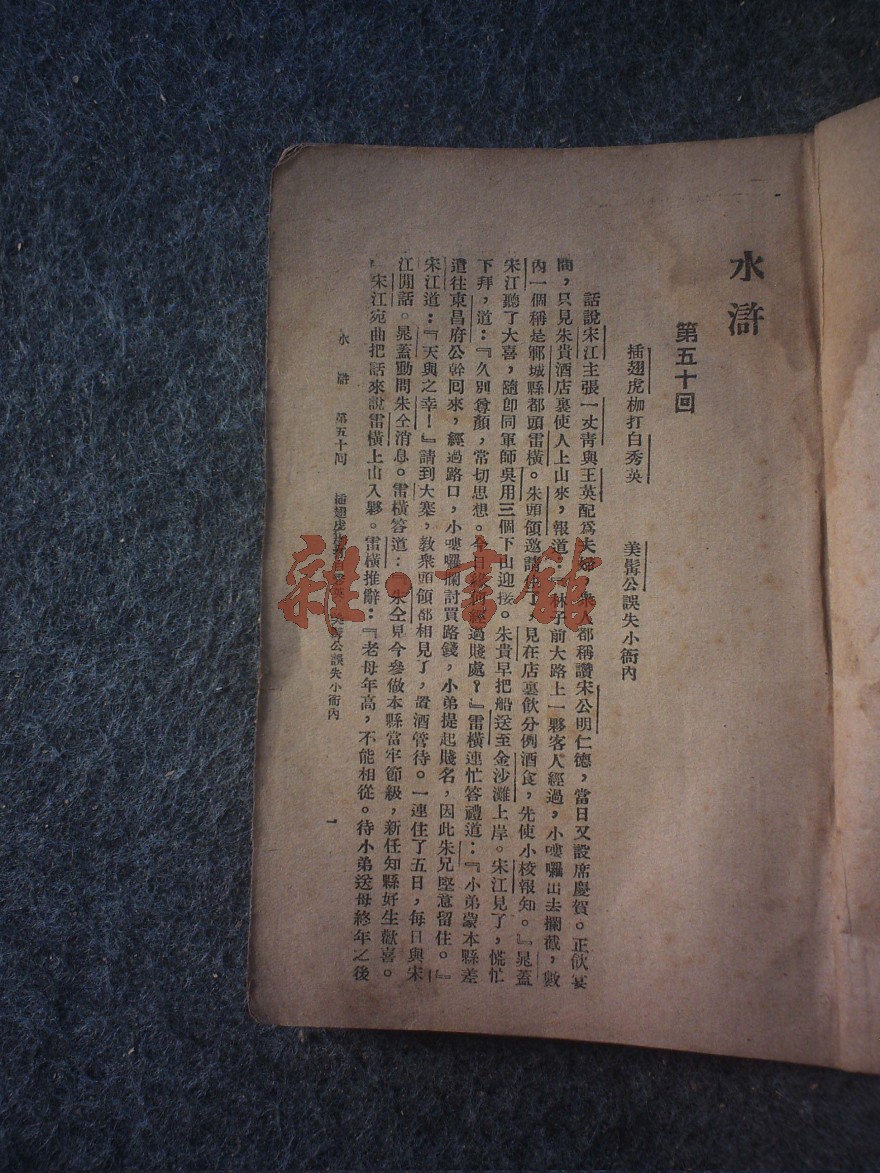 水滸
第五十回
插翅虎枷打白秀英　美髯公誤失小衙內
話說宋江主張一丈青與王英配爲夫婦，衆人都稱讚宋公明仁德，當日又設席慶賀。正飲宴
間，只見朱貴酒店裏使人上山來，報道：『林子前大路上一夥客人經過，小嘍囉出去攔截，數
內一個稱是鄆城縣都頭雷橫。朱頭領邀請住了，見在店裏飲分例酒食，先使小校報知。』晁蓋
宋江聽了大喜，隨卽同軍師吳用三個下山迎接。朱貴早把船送至金沙灘上岸。宋江見了，慌忙
下拜，道：『久別尊顏，常切思想。今日緣何經過賤處？』雷橫連忙答禮道：『小弟蒙本縣差
遣往東昌府公幹囘來，經過路口，小嘍囉攔討買路錢，小弟提起賤名，因此朱兄堅意留住。』
宋江道：『天與之幸！』請到大寨，教衆頭領都相見了，置酒管待。一連住了五日，每日與宋
江閒話。晁蓋動問朱仝消息。雷橫答道：『朱仝見今參做本縣當牢節級，新任知縣好生歡喜。
』宋江宛曲把話來說雷橫上山入夥。雷橫推辭：『老母年高，不能相從。待小弟送母終年之後
水滸　第五十囘　插翅虎枷打白秀英　美髯公誤失小衙內　一
雜·書館